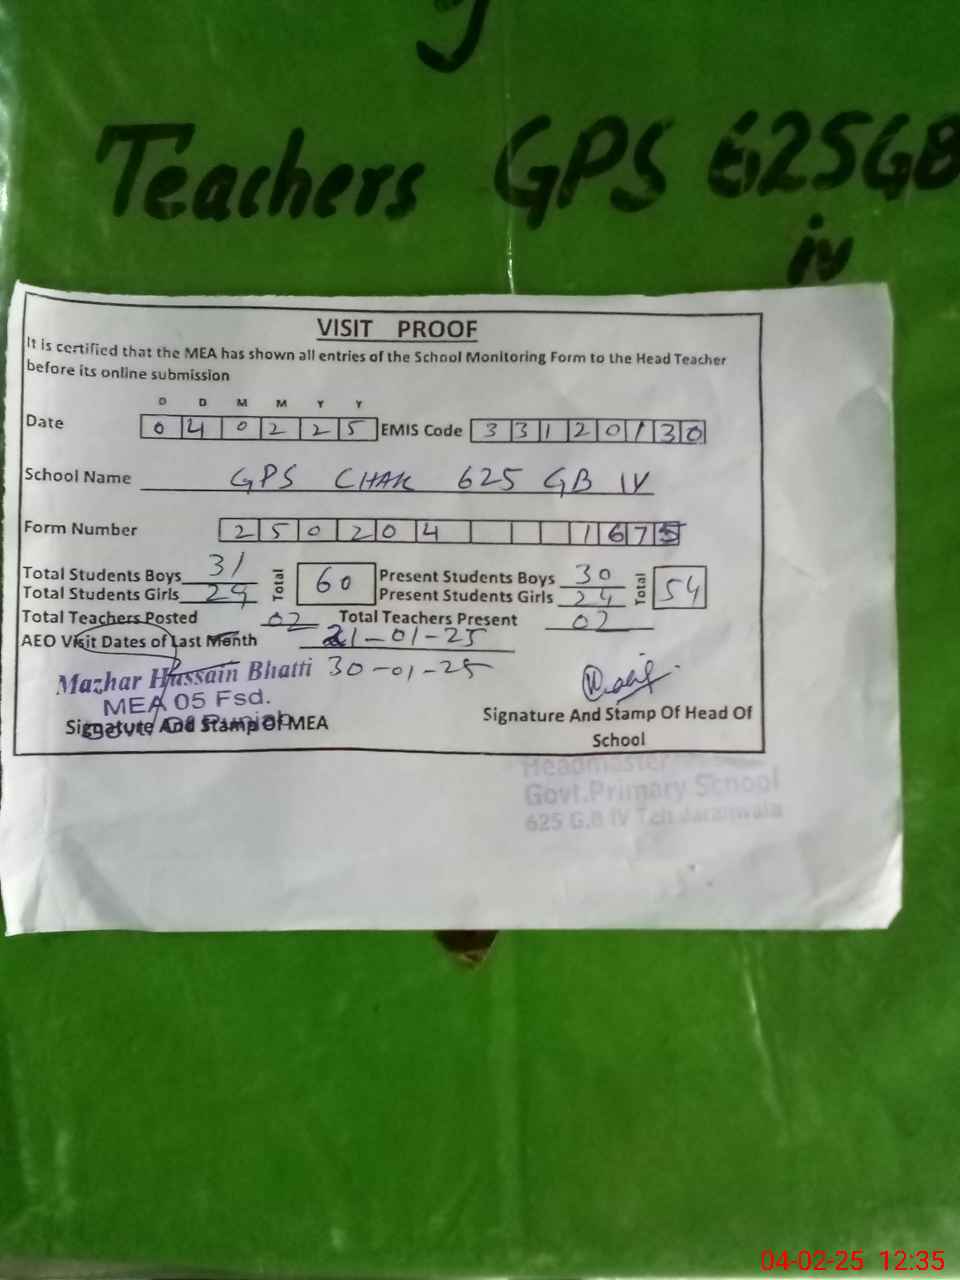 Teachers GPS 625GB
iv
VISIT PROOF
It is certified that the MEA has shown all entries of the School Monitoring Form to the Head Teacher
before its online submission
D D M M Y Y
Date 0 4 0 2 2 5 EMIS Code 3 3 1 2 0 1 3 0
School Name GPS CHAK 625 GB IV
Form Number 2 5 0 2 0 4 1 6 7 5
Total Students Boys 31 Total 60 Present Students Boys 30 Total 54
Total Students Girls 29 Present Students Girls 24
Total Teachers Posted 02 Total Teachers Present 02
AEO Visit Dates of Last Month 21-01-25
30-01-25
Mazhar Hussain Bhatti
MEA 05 Fsd.
Govt. Of Punjab
Signature And Stamp Of MEA
Signature And Stamp Of Head Of
School
Headmaster
Govt.Primary School
625 G.B IV Teh Jaranwala
04-02-25 12:35